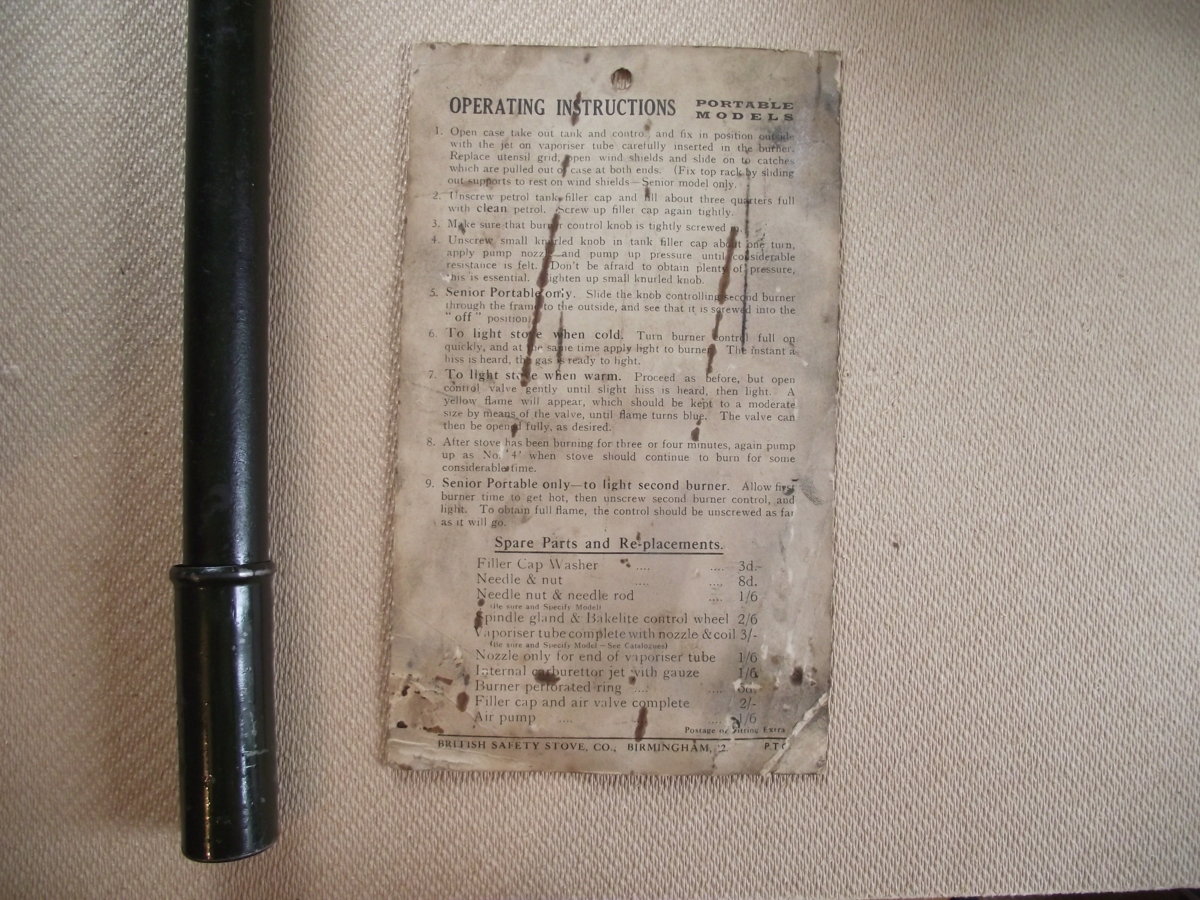 OPERATING INSTRUCTIONS PORTABLE MODELS
1. Open case take out tank and control and fix in position outside
with the jet on vaporiser tube carefully inserted in the burner.
Replace utensil grid, open wind shields and slide on to catches
which are pulled out of case at both ends. (Fix top rack by sliding
out supports to rest on wind shields—Senior model only.
2. Unscrew petrol tank filler cap and fill about three quarters full
with clean petrol. Screw up filler cap again tightly.
3. Make sure that burner control knob is tightly screwed
4. Unscrew small knurled knob in tank filler cap about one turn,
apply pump nozzle and pump up pressure until considerable
resistance is felt. Don't be afraid to obtain plenty of pressure,
this is essential. Tighten up small knurled knob.
5. Senior Portable only. Slide the knob controlling second burner
through the frame to the outside, and see that it is screwed into the
"off" position.
6. To light stove when cold. Turn burner control full on
quickly, and at the same time apply light to burner. The instant a
hiss is heard, the gas is ready to light.
7. To light stove when warm. Proceed as before, but open
control valve gently until slight hiss is heard, then light. A
yellow flame will appear, which should be kept to a moderate
size by means of the valve, until flame turns blue. The valve can
then be opened fully, as desired.
8. After stove has been burning for three or four minutes, again pump
up as No. '4' when stove should continue to burn for some
considerable time.
9. Senior Portable only—to light second burner. Allow first
burner time to get hot, then unscrew second burner control, and
light. To obtain full flame, the control should be unscrewed as far
as it will go.
Spare Parts and Re-placements.
Filler Cap Washer .... .... 3d.
Needle & nut .... .... 8d.
Needle nut & needle rod .... 1/6
(Be sure and Specify Model)
Spindle gland & Bakelite control wheel 2/6
Vaporiser tube complete with nozzle & coil 3/-
(Be sure and Specify Model—See Catalogues)
Nozzle only for end of vaporiser tube 1/6
Internal carburettor jet with gauze 1/6
Burner perforated ring .... ....
Filler cap and air valve complete 2/-
Air pump .... .... 1/6
Postage or Fitting Extra
BRITISH SAFETY STOVE, CO., BIRMINGHAM, P.T.O